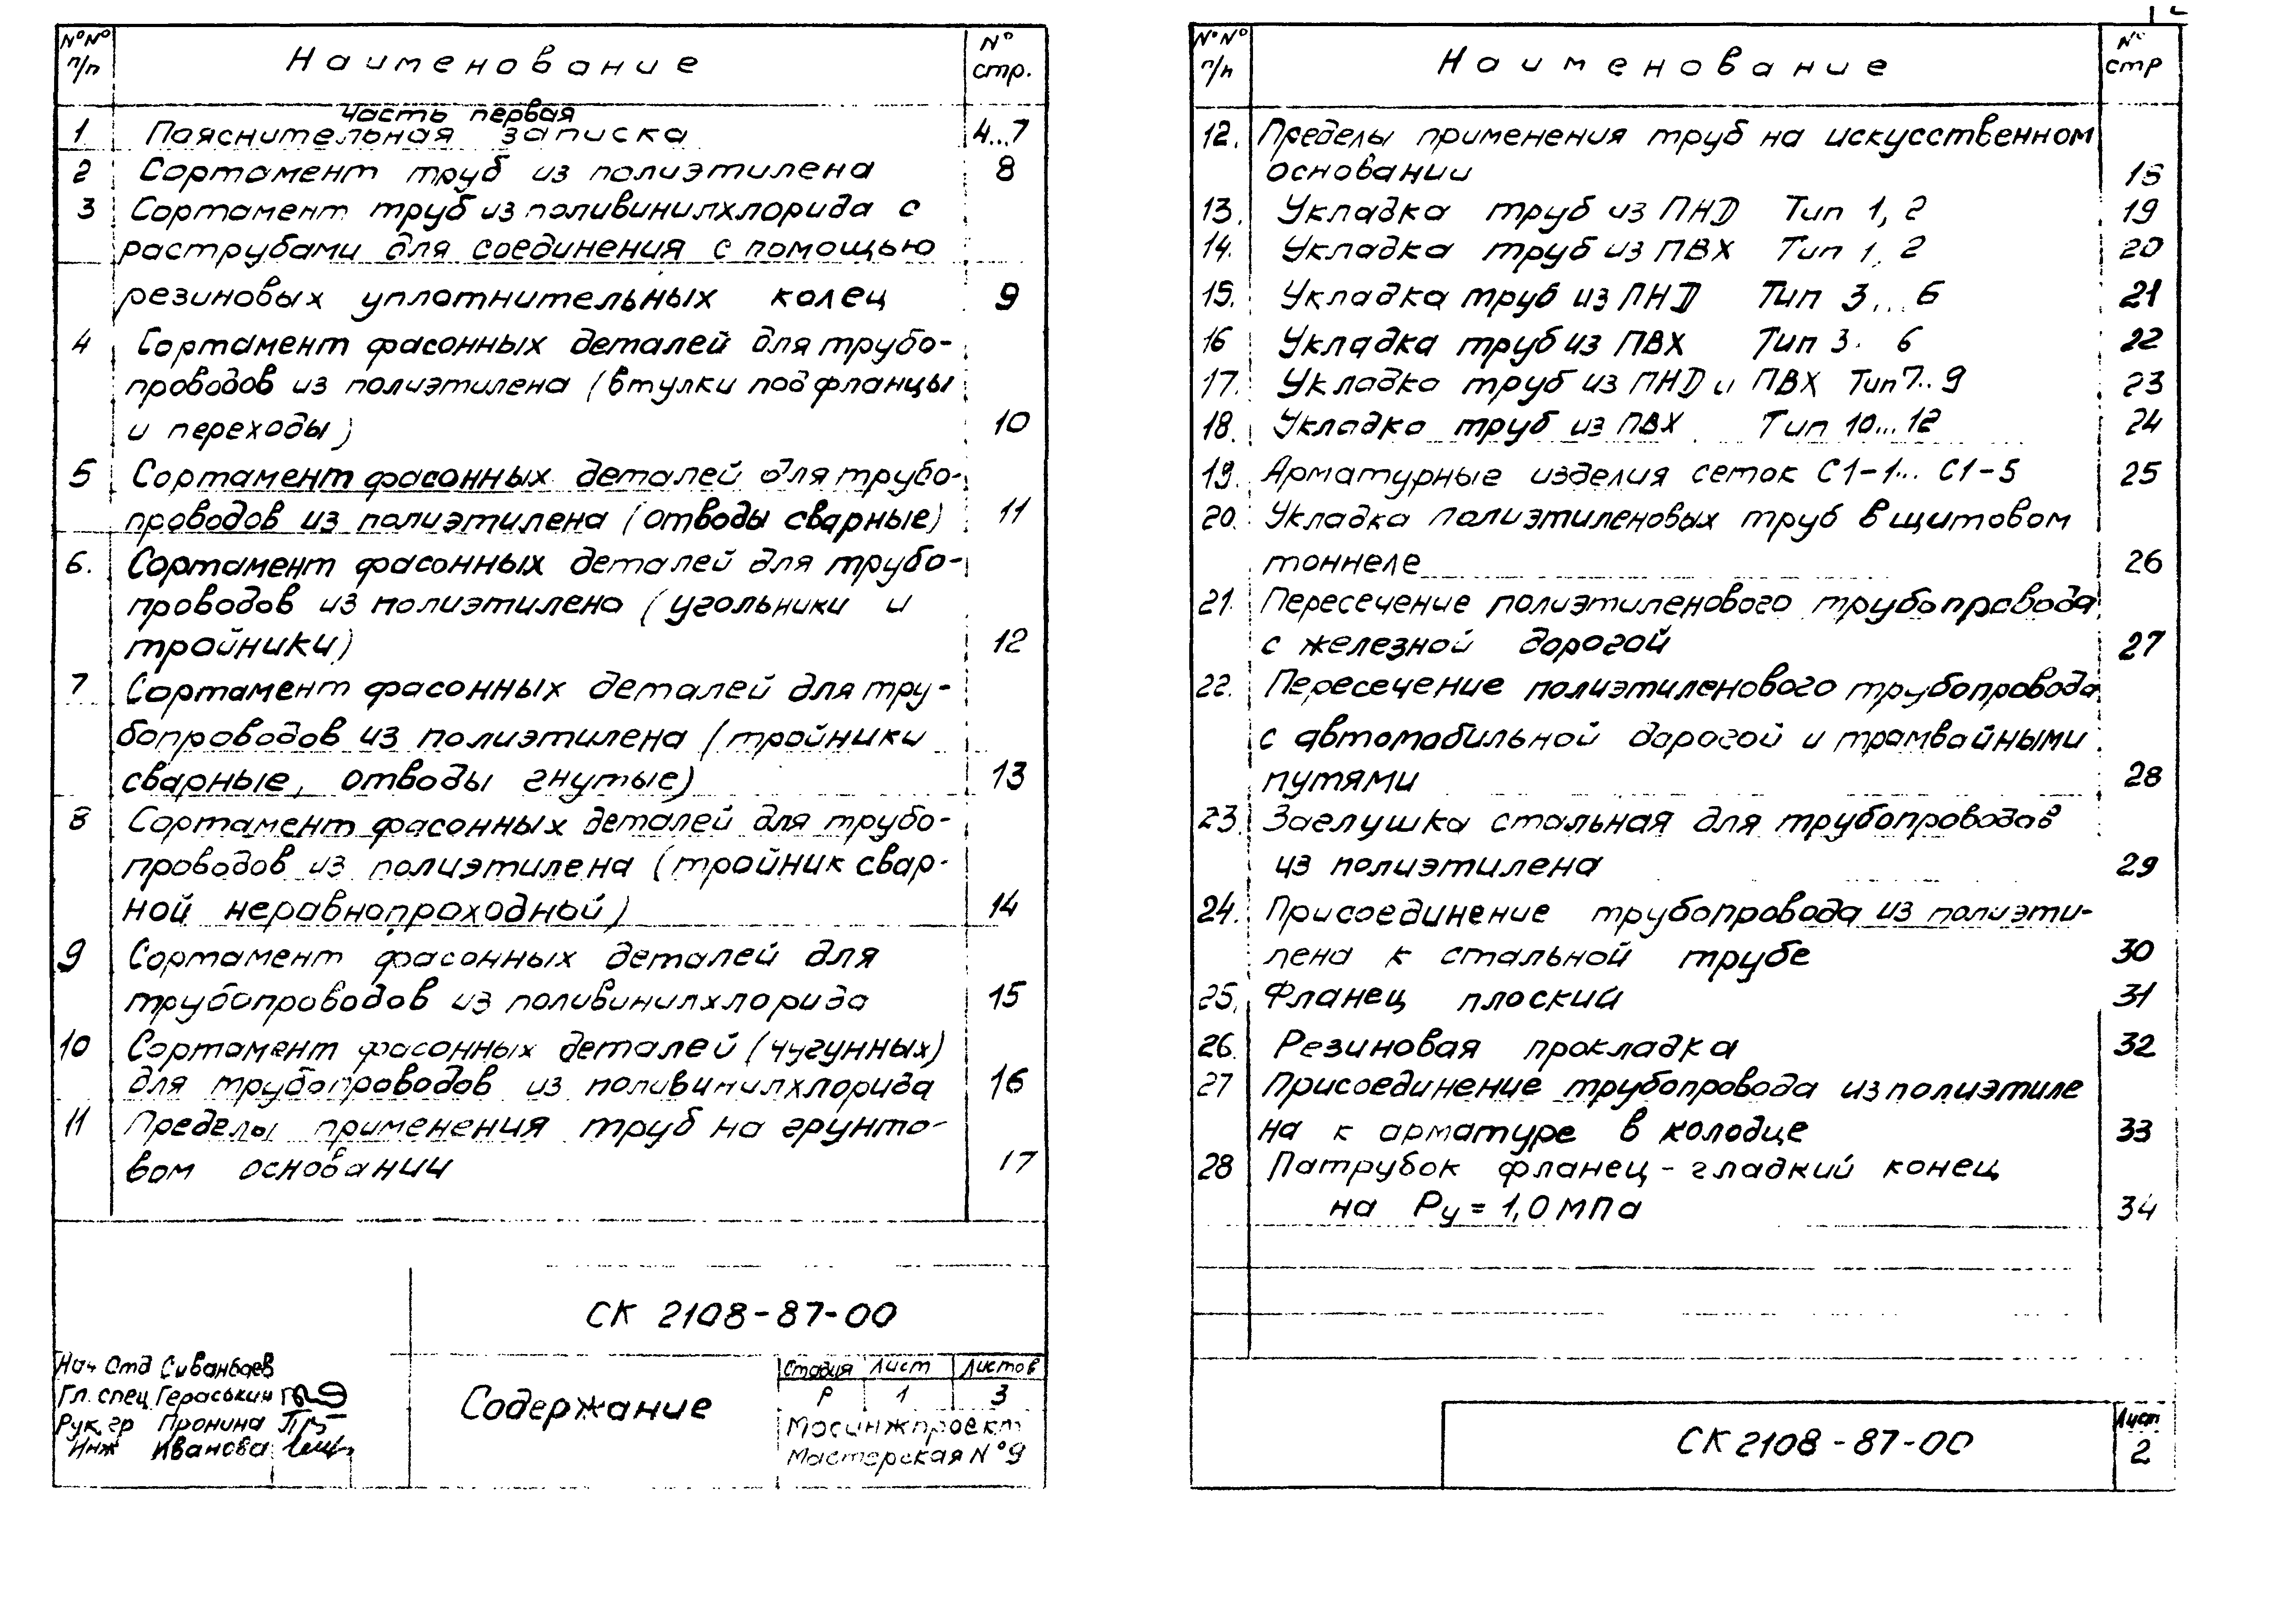 №№ п/п Наименование № стр.
Часть первая
1 Пояснительная записка 4...7
2 Сортамент труб из полиэтилена 8
3 Сортамент труб из поливинилхлорида с
раструбами для соединения с помощью
резиновых уплотнительных колец 9
4 Сортамент фасонных деталей для трубо-
проводов из полиэтилена (втулки под фланцы
и переходы) 10
5 Сортамент фасонных деталей для трубо-
проводов из полиэтилена (отводы сварные) 11
6. Сортамент фасонных деталей для трубо-
проводов из полиэтилена (угольники и
тройники) 12
7 Сортамент фасонных деталей для тру-
бопроводов из полиэтилена (тройники
сварные, отводы гнутые) 13
8 Сортамент фасонных деталей для трубо-
проводов из полиэтилена (тройник свар-
ной неравнопроходной) 14
9 Сортамент фасонных деталей для
трубопроводов из поливинилхлорида 15
10 Сортамент фасонных деталей (чугунных)
для трубопроводов из поливинилхлорида 16
11 Пределы применения труб на грунто-
вом основании 17
СК 2108-87-00
Нач Отд Сиванбаев
Гл. спец Гераськин
Рук. гр Пронина
Инж Иванова
Содержание
Стадия Лист Листов
Р 1 3
Мосинжпроект
Мастерская №9
№№ п/п Наименование № стр
12. Пределы применения труб на искусственном
основании 18
13. Укладка труб из ПНД Тип 1, 2 19
14. Укладка труб из ПВХ Тип 1, 2 20
15. Укладка труб из ПНД Тип 3... 6 21
16 Укладка труб из ПВХ Тип 3. 6 22
17. Укладка труб из ПНД и ПВХ Тип 7..9 23
18. Укладка труб из ПВХ Тип 10...12 24
19. Арматурные изделия сеток С1-1... С1-5 25
20. Укладка полиэтиленовых труб в щитовом
тоннеле 26
21. Пересечение полиэтиленового трубопровода
с железной дорогой 27
22. Пересечение полиэтиленового трубопровода
с автомобильной дорогой и трамвайными
путями 28
23. Заглушка стальная для трубопроводов
из полиэтилена 29
24. Присоединение трубопровода из полиэти-
лена к стальной трубе 30
25. Фланец плоский 31
26. Резиновая прокладка 32
27 Присоединение трубопровода из полиэтиле
на к арматуре в колодце 33
28 Патрубок фланец - гладкий конец
на Ру = 1,0 МПа 34
СК 2108-87-00
Лист
2